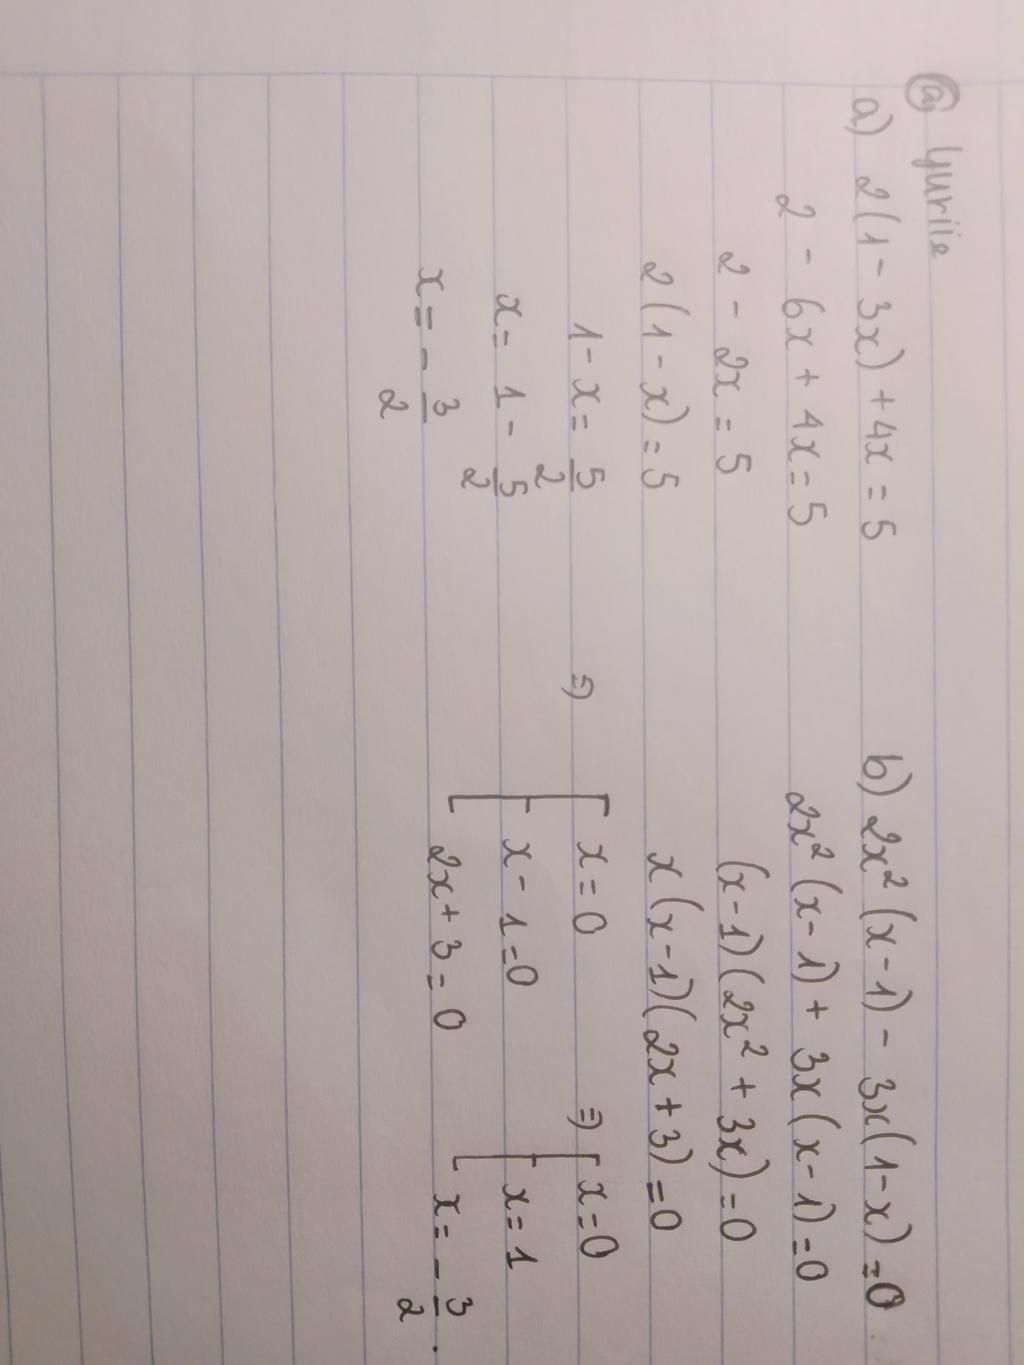 @ Yuriie
a) 2(1-3x)+4x=5
2-6x+4x=5
2-2x=5
2(1-x)=5
1-x=5/2
x=1-5/2
x=-3/2
b) 2x²(x-1)-3x(1-x)=0
2x²(x-1)+3x(x-1)=0
(x-1)(2x²+3x)=0
x(x-1)(2x+3)=0
=) [x=0 =) [x=0
[x-1=0 [x=1
[2x+3=0 [x=-3/2.